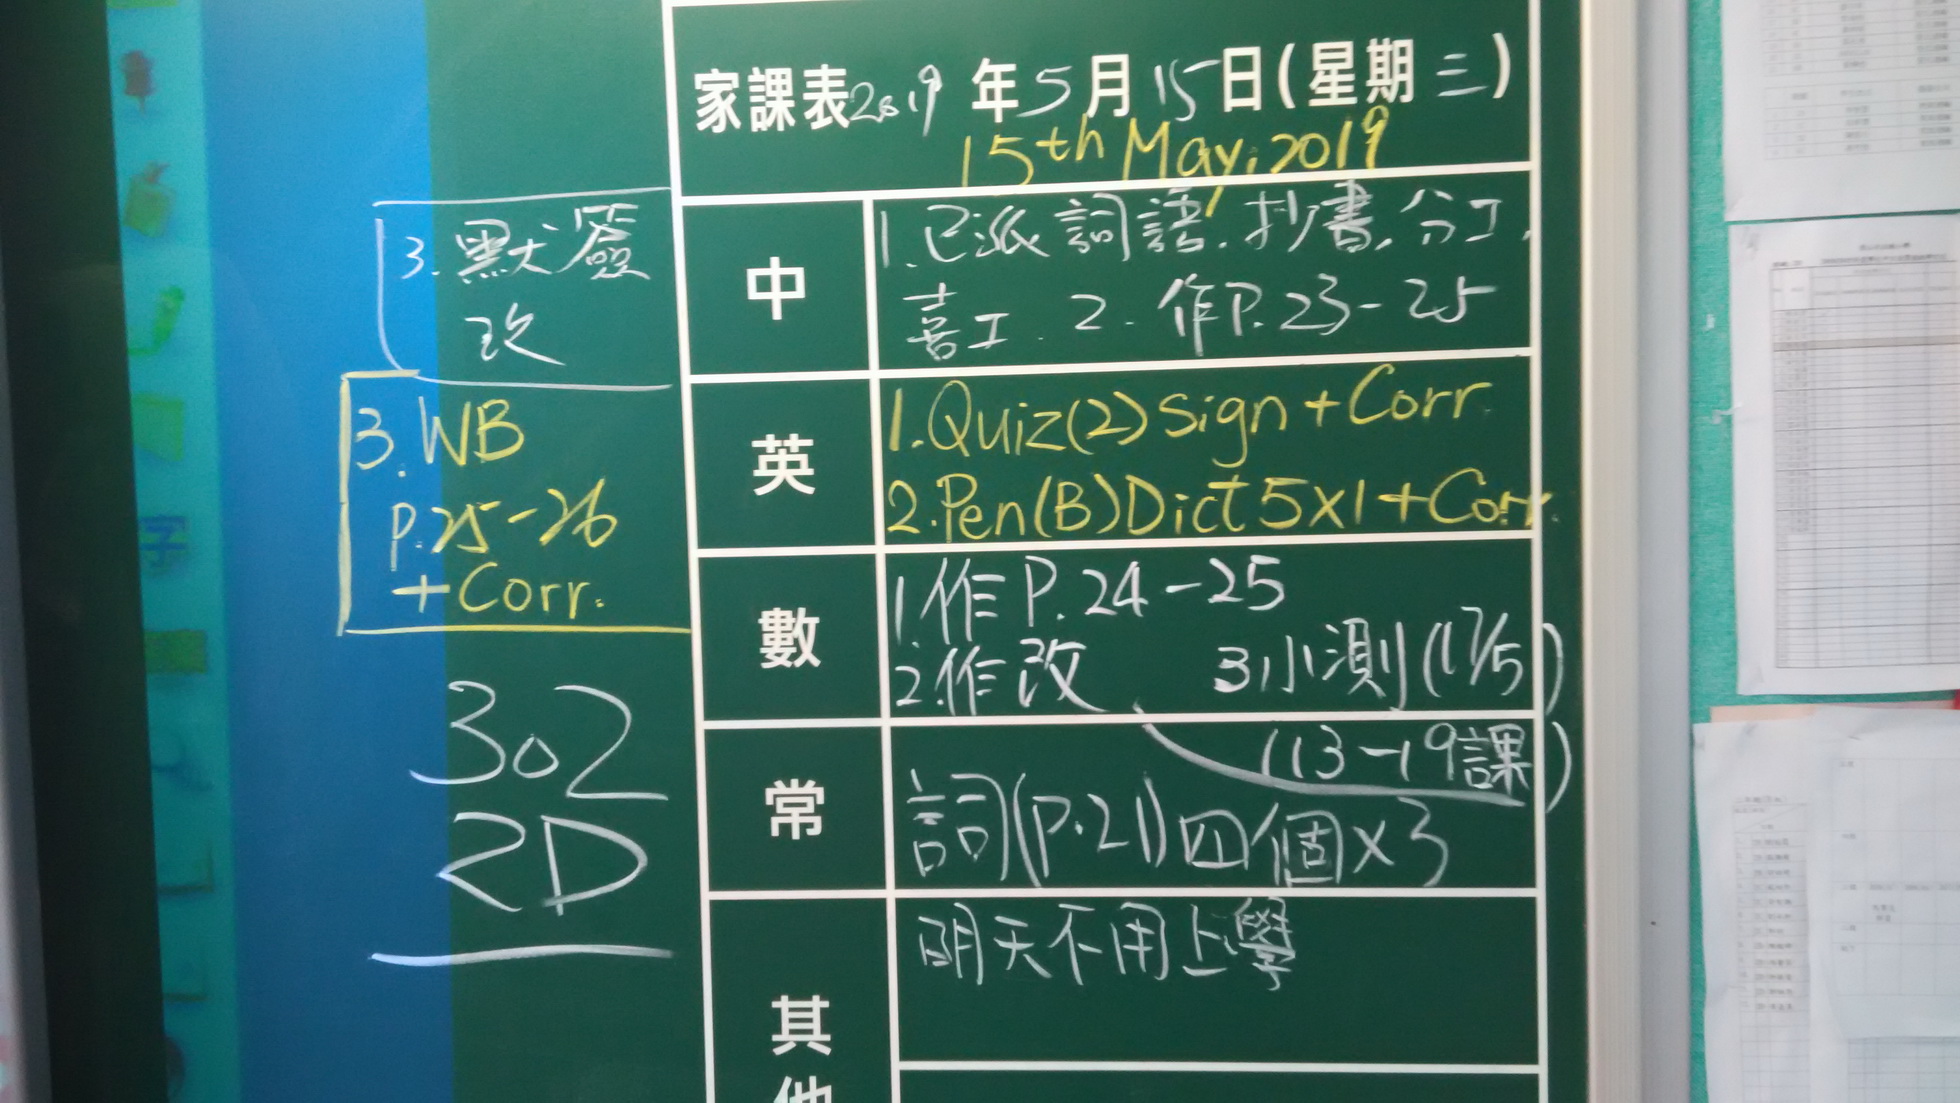 家課表2019年5月15日(星期三)
15th May, 2019
中
1.已派詞語.抄書.分工.
喜工. 2. 作P.23-25
3.默簽
改
英
1.Quiz(2)Sign+Corr.
2.Pen(B)Dict5x1+Corr.
3.WB
p.25-26
+Corr.
數
1.作P.24-25
2.作改 3小測(17/5)
(13-19課)
常
詞(P.21)四個x3
302
2D
其他
明天不用上學
字